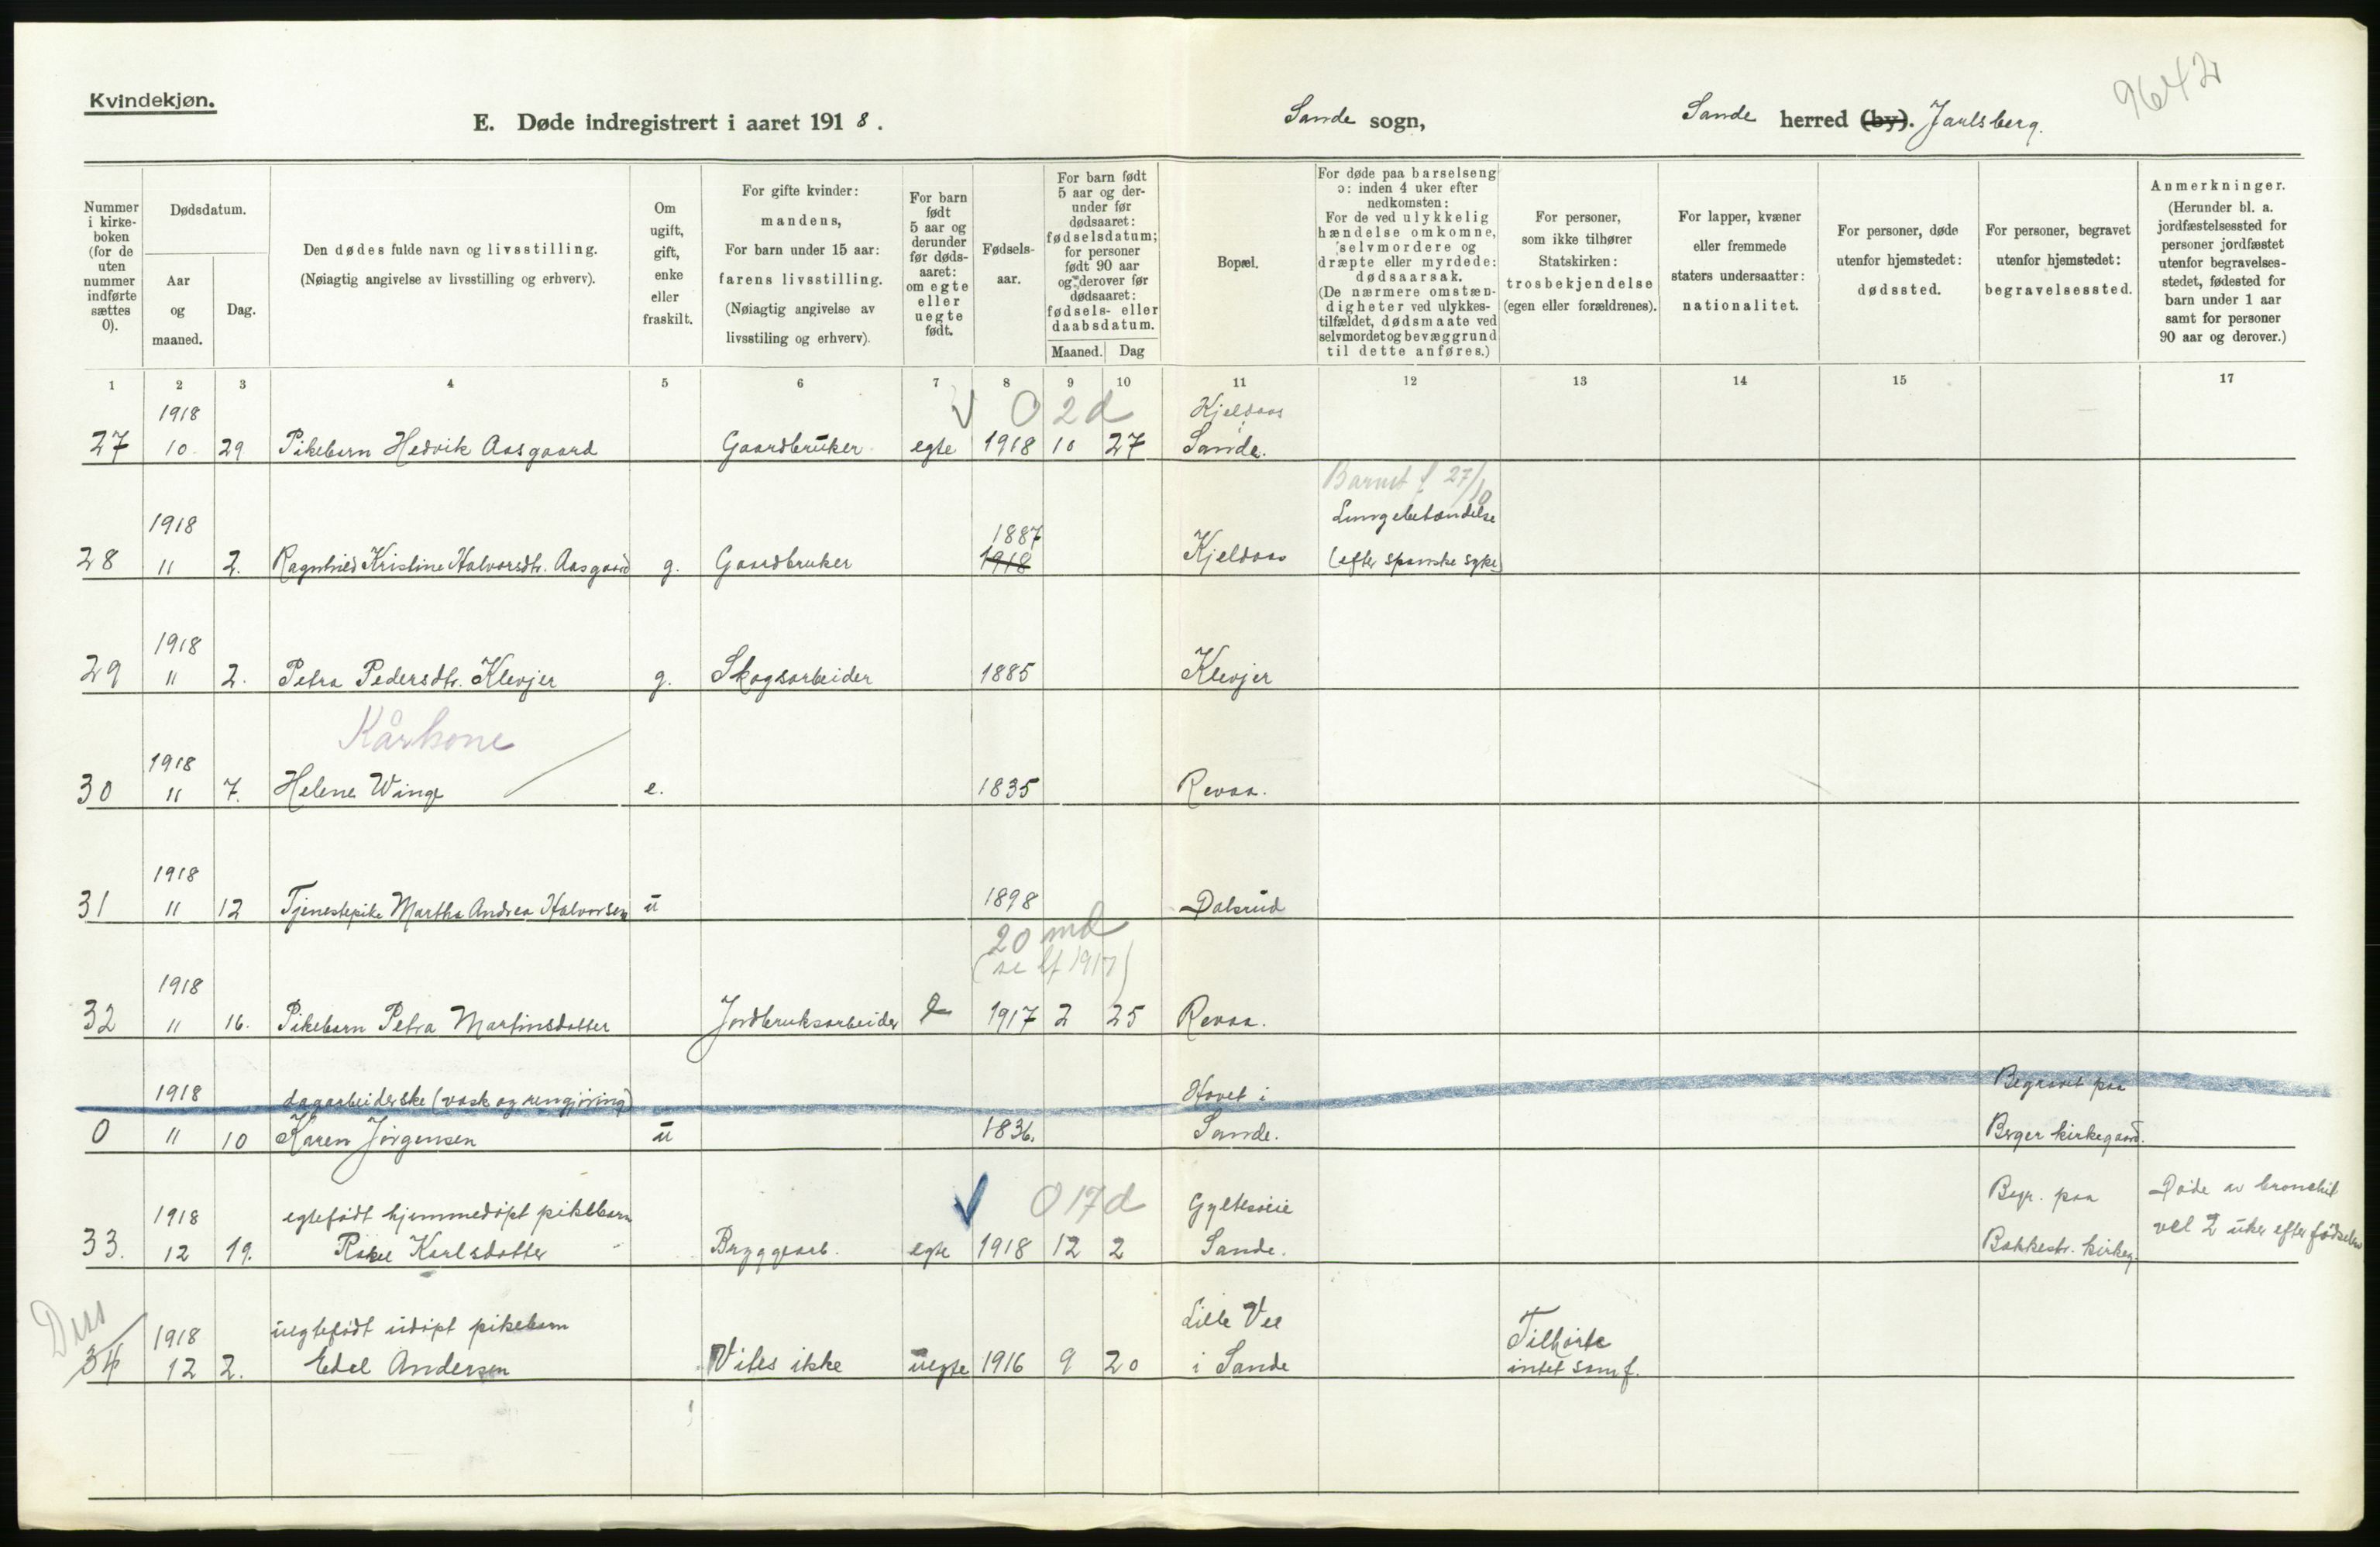 Kvindekjøn.
9642
E. Døde indregistrert i aaret 1918.
Sande sogn,
Sande herred (by). Jarlsberg.
Nummer i kirke-boken (for de uten nummer indførte sættes 0).
Dødsdatum.
Aar og maaned.
Dag.
Den dødes fulde navn og livsstilling.
(Nøiagtig angivelse av livsstilling og erhverv).
Om ugift, gift, enke eller fraskilt.
For gifte kvinder: mandens,
For barn under 15 aar: farens livsstilling.
(Nøiagtig angivelse av livsstiling og erhverv).
For barn født 5 aar og derunder før døds-aaret: om egte eller uegte født.
Fødsels-aar.
For barn født 5 aar og der-under før dødsaaret: fødselsdatum; for personer født 90 aar og derover før dødsaaret: fødsels- eller daabsdatum.
Maaned. Dag
Bopæl.
For døde paa barselseng ɔ: inden 4 uker efter nedkomsten:
For de ved ulykkelig hændelse omkomne, selvmordere og dræpte eller myrdede: dødsaarsak.
(De nærmere omstæn-digheter ved ulykkes-tilfældet, dødsmaate ved selvmordet og bevæggrund til dette anføres.)
For personer, som ikke tilhører Statskirken: trosbekjendelse (egen eller forældrenes).
For lapper, kvæner eller fremmede staters undersaatter: nationalitet.
For personer, døde utenfor hjemstedet: dødssted.
For personer, begravet utenfor hjemstedet: begravelsessted.
Anmerkninger.
(Herunder bl. a. jordfæstelsessted for personer jordfæstet utenfor begravelses-stedet, fødested for barn under 1 aar samt for personer 90 aar og derover.)
1 2 3 4 5 6 7 8 9 10 11 12 13 14 15 17
1918 0 2 d Kjeldaas
27 10 29 Pikebarn Hedvik Aasgaard Gaardbruker egte 1918 10 27 Sande.
Barnet f. 27/10
1918 1887 Lungebetændelse
28 11 2. Ragnhild Kristine Halvorsdtr. Aasgaard g. Gaardbruker 1918 Kjeldaas (efter spanske syke)
1918
29 11 2. Petra Pedersdtr. Klevjer g. Skogsarbeider 1885 Klevjer
Kårkone
1918
30 11 7. Helene Winge e. 1835 Revaa.
1918
31 11 12 Tjenestepike Martha Andrea Halvorsen u 1898 Dalsrud
20 md
(se lf 1917)
1918
32 11 16. Pikebarn Petra Martinsdatter Jordbruksarbeider e 1917 2 25 Revaa.
1918 dagarbeiderske (vask og rengjøring) Hovet i Begravet paa
0 11 10 Karen Jørgensen u 1836. Sande. Berger kirkegaard.
0 17 d
1918 egtefødt hjemmedøpt pikebarn Begr. paa Døde av bronchit
33. 12 19. Rakel Karlsdatter Bryggearb. egte 1918 12 2 Sande. Bakkestr. kirkeg. vel 2 uker efter fødselen
Diss
1918 uegtefødt udøpt pikebarn Lille Vee Tilhørte
34 12 2. Edel Andersen Vites ikke uegte 1916 9 20 i Sande intet samf.